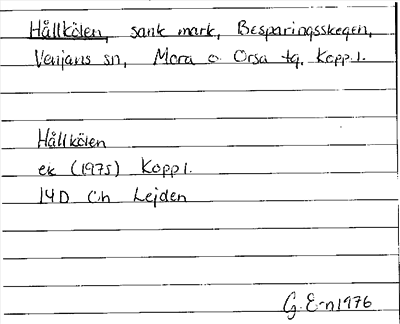 Hållkölen, sank mark, Besparingsskogen,
Venjans sn, Mora o Orsa tg. Kopp.l.
Hållkölen
ek (1975) Kopp l.
14D Ch Lejden
G. E-n 1976